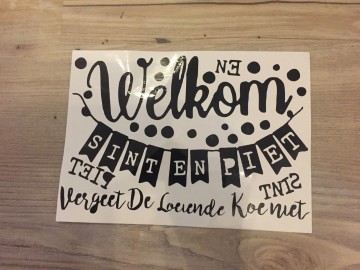 EN
Welkom
SINT EN PIET
PIET
SINT
Vergeet De Loeiende Koe niet